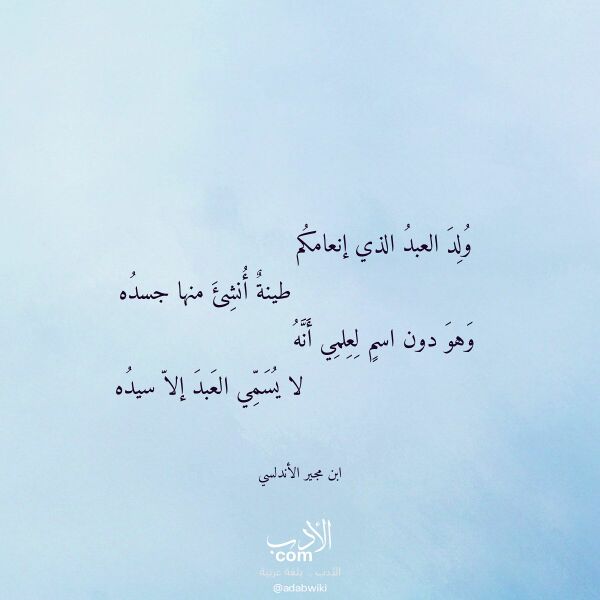 وُلِدَ العبدُ الذي إنعامكُم
طينةٌ أُنشِئَ منها جسدُه
وَهوَ دون اسمٍ لِعِلمِي أَنَّهُ
لا يُسَمِّي العَبدَ إلاّ سيدُه
ابن مجير الأندلسي
الأدب
com
الأدب .. بلغة عربية
@adabwiki